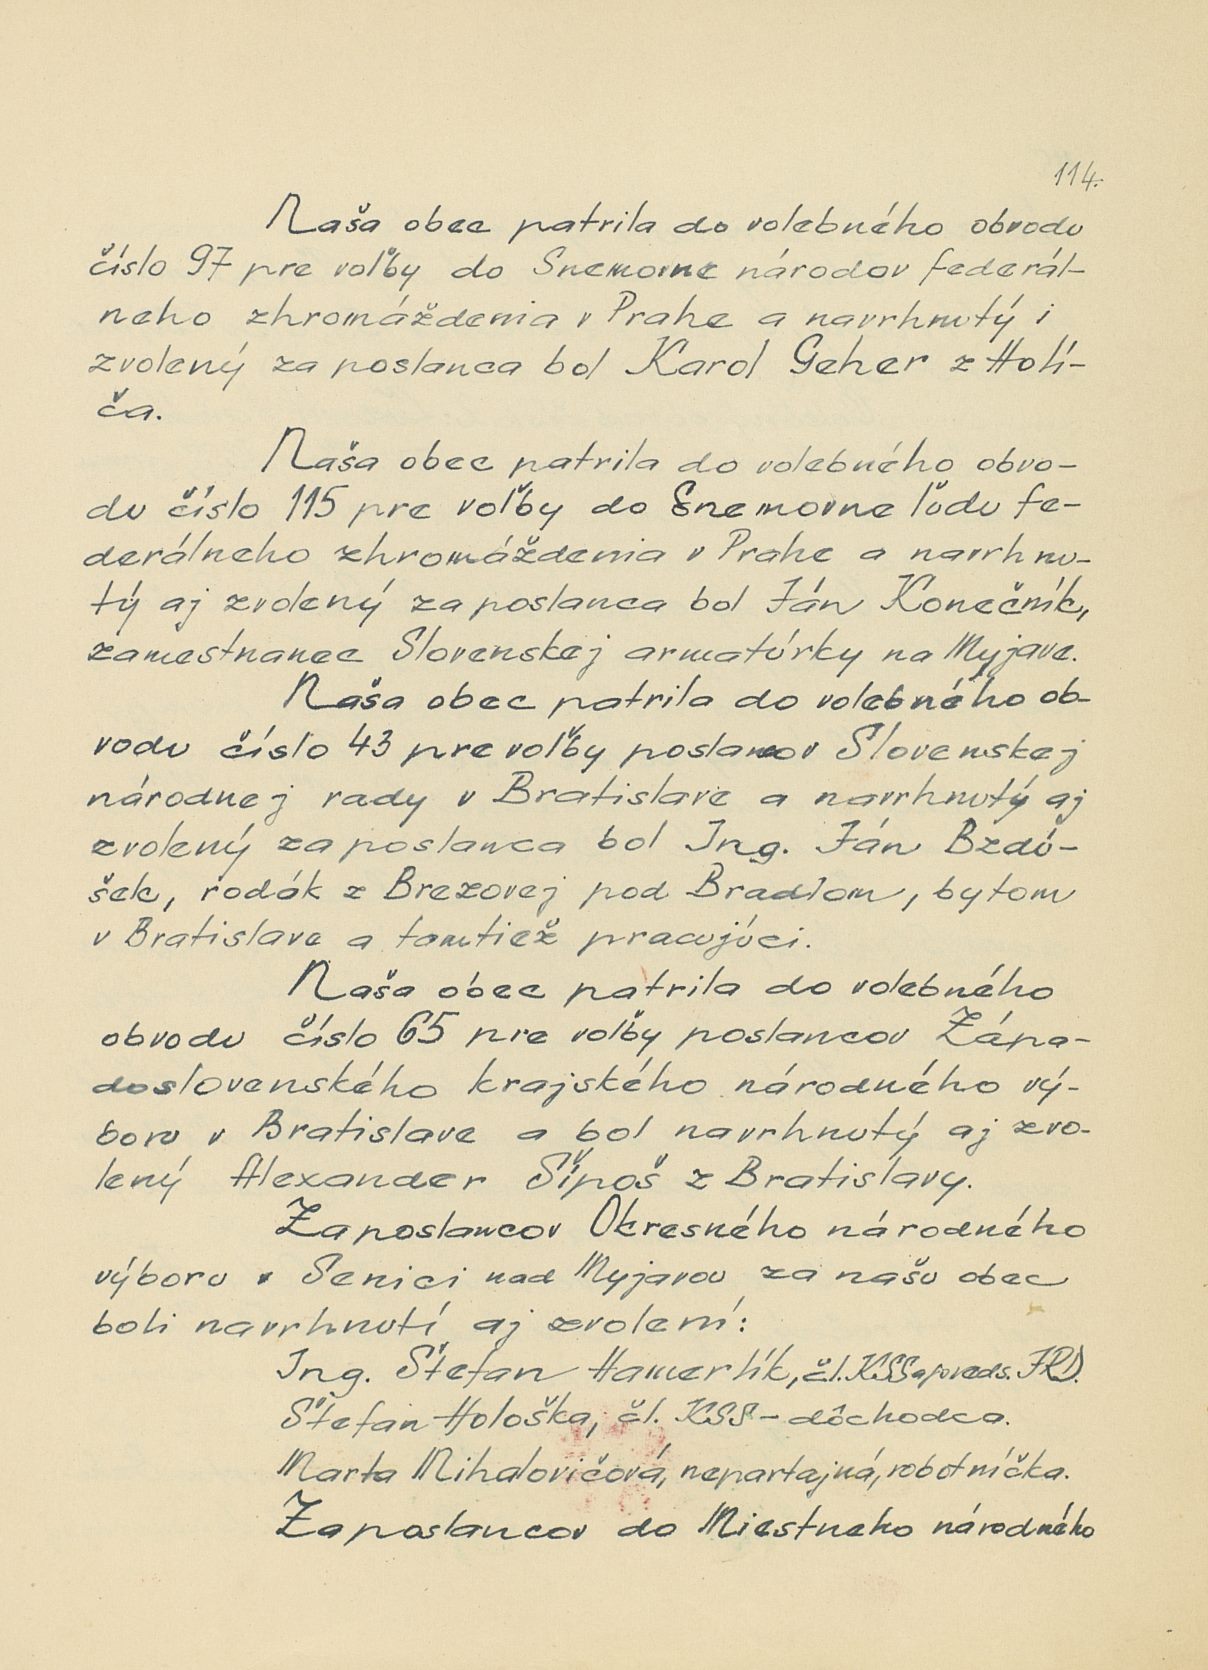 114.
Naša obec patrila do volebného obvodu
číslo 97 pre voľby do Snemovne národov federál-
neho zhromáždenia v Prahe a navrhnutý i
zvolený za poslanca bol Karol Geher z Holí-
ča.
Naša obec patrila do volebného obvo-
du číslo 115 pre voľby do Snemovne ľudu fe-
derálneho zhromáždenia v Prahe a navrhnu-
tý aj zvolený za poslanca bol Ján Konečník,
zamestnanec Slovenskej armatúrky na Myjave.
Naša obec patrila do volebného ob-
vodu číslo 43 pre voľby poslancov Slovenskej
národnej rady v Bratislave a navrhnutý aj
zvolený za poslanca bol Ing. Ján Bzdú-
šek, rodák z Brezovej pod Bradlom, bytom
v Bratislave a tamtiež pracujúci.
Naša obec patrila do volebného
obvodu číslo 65 pre voľby poslancov Zápa-
doslovenského krajského národného vý-
boru v Bratislave a bol navrhnutý aj zvo-
lený Alexander Šípoš z Bratislavy.
Za poslancov Okresného národného
výboru v Senici nad Myjavou za našu obec
boli navrhnutí aj zvolení:
Ing. Štefan Hamerlík, čl. KSS a preds. JRD.
Štefan Hološka, čl. KSS - dôchodca.
Marta Mihalovičová, nepartajná, robotníčka.
Za poslancov do Miestneho národného